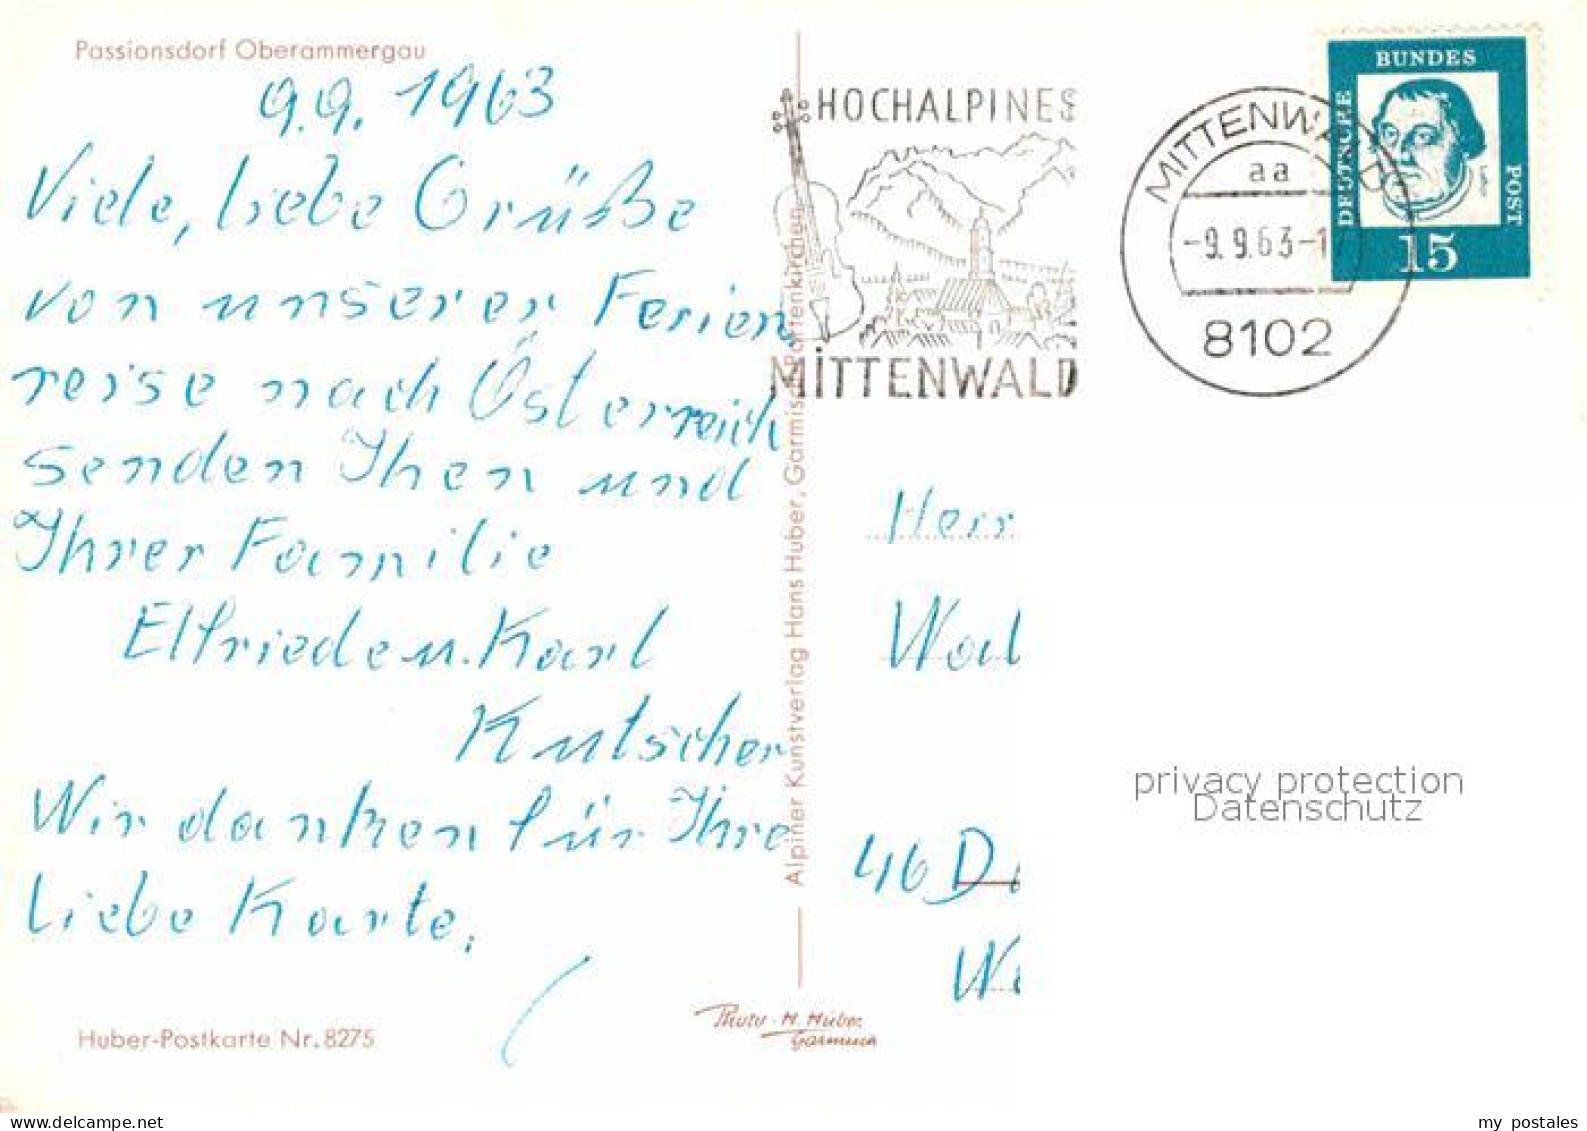 Passionsdorf Oberammergau
9.9.1963
Viele, liebe Grüße
von unserer Ferien
reise nach Österreich
senden Ihen und
Ihrer Familie
Elfriede u. Karl
Kutscher
Wir danken für Ihre
liebe Karte.
Huber-Postkarte Nr. 8275
Alpiner Kunstverlag Hans Huber, Garmisch-Partenkirchen
Photo-H. Huber
Garmisch
HOCHALPINES
MiTTENWALD
MITTENWALD
aa
-9.9.63-1
8102
DEUTSCHE
BUNDES
POST
15
Herr
Wal
46 D
W
privacy protection
Datenschutz
my postales